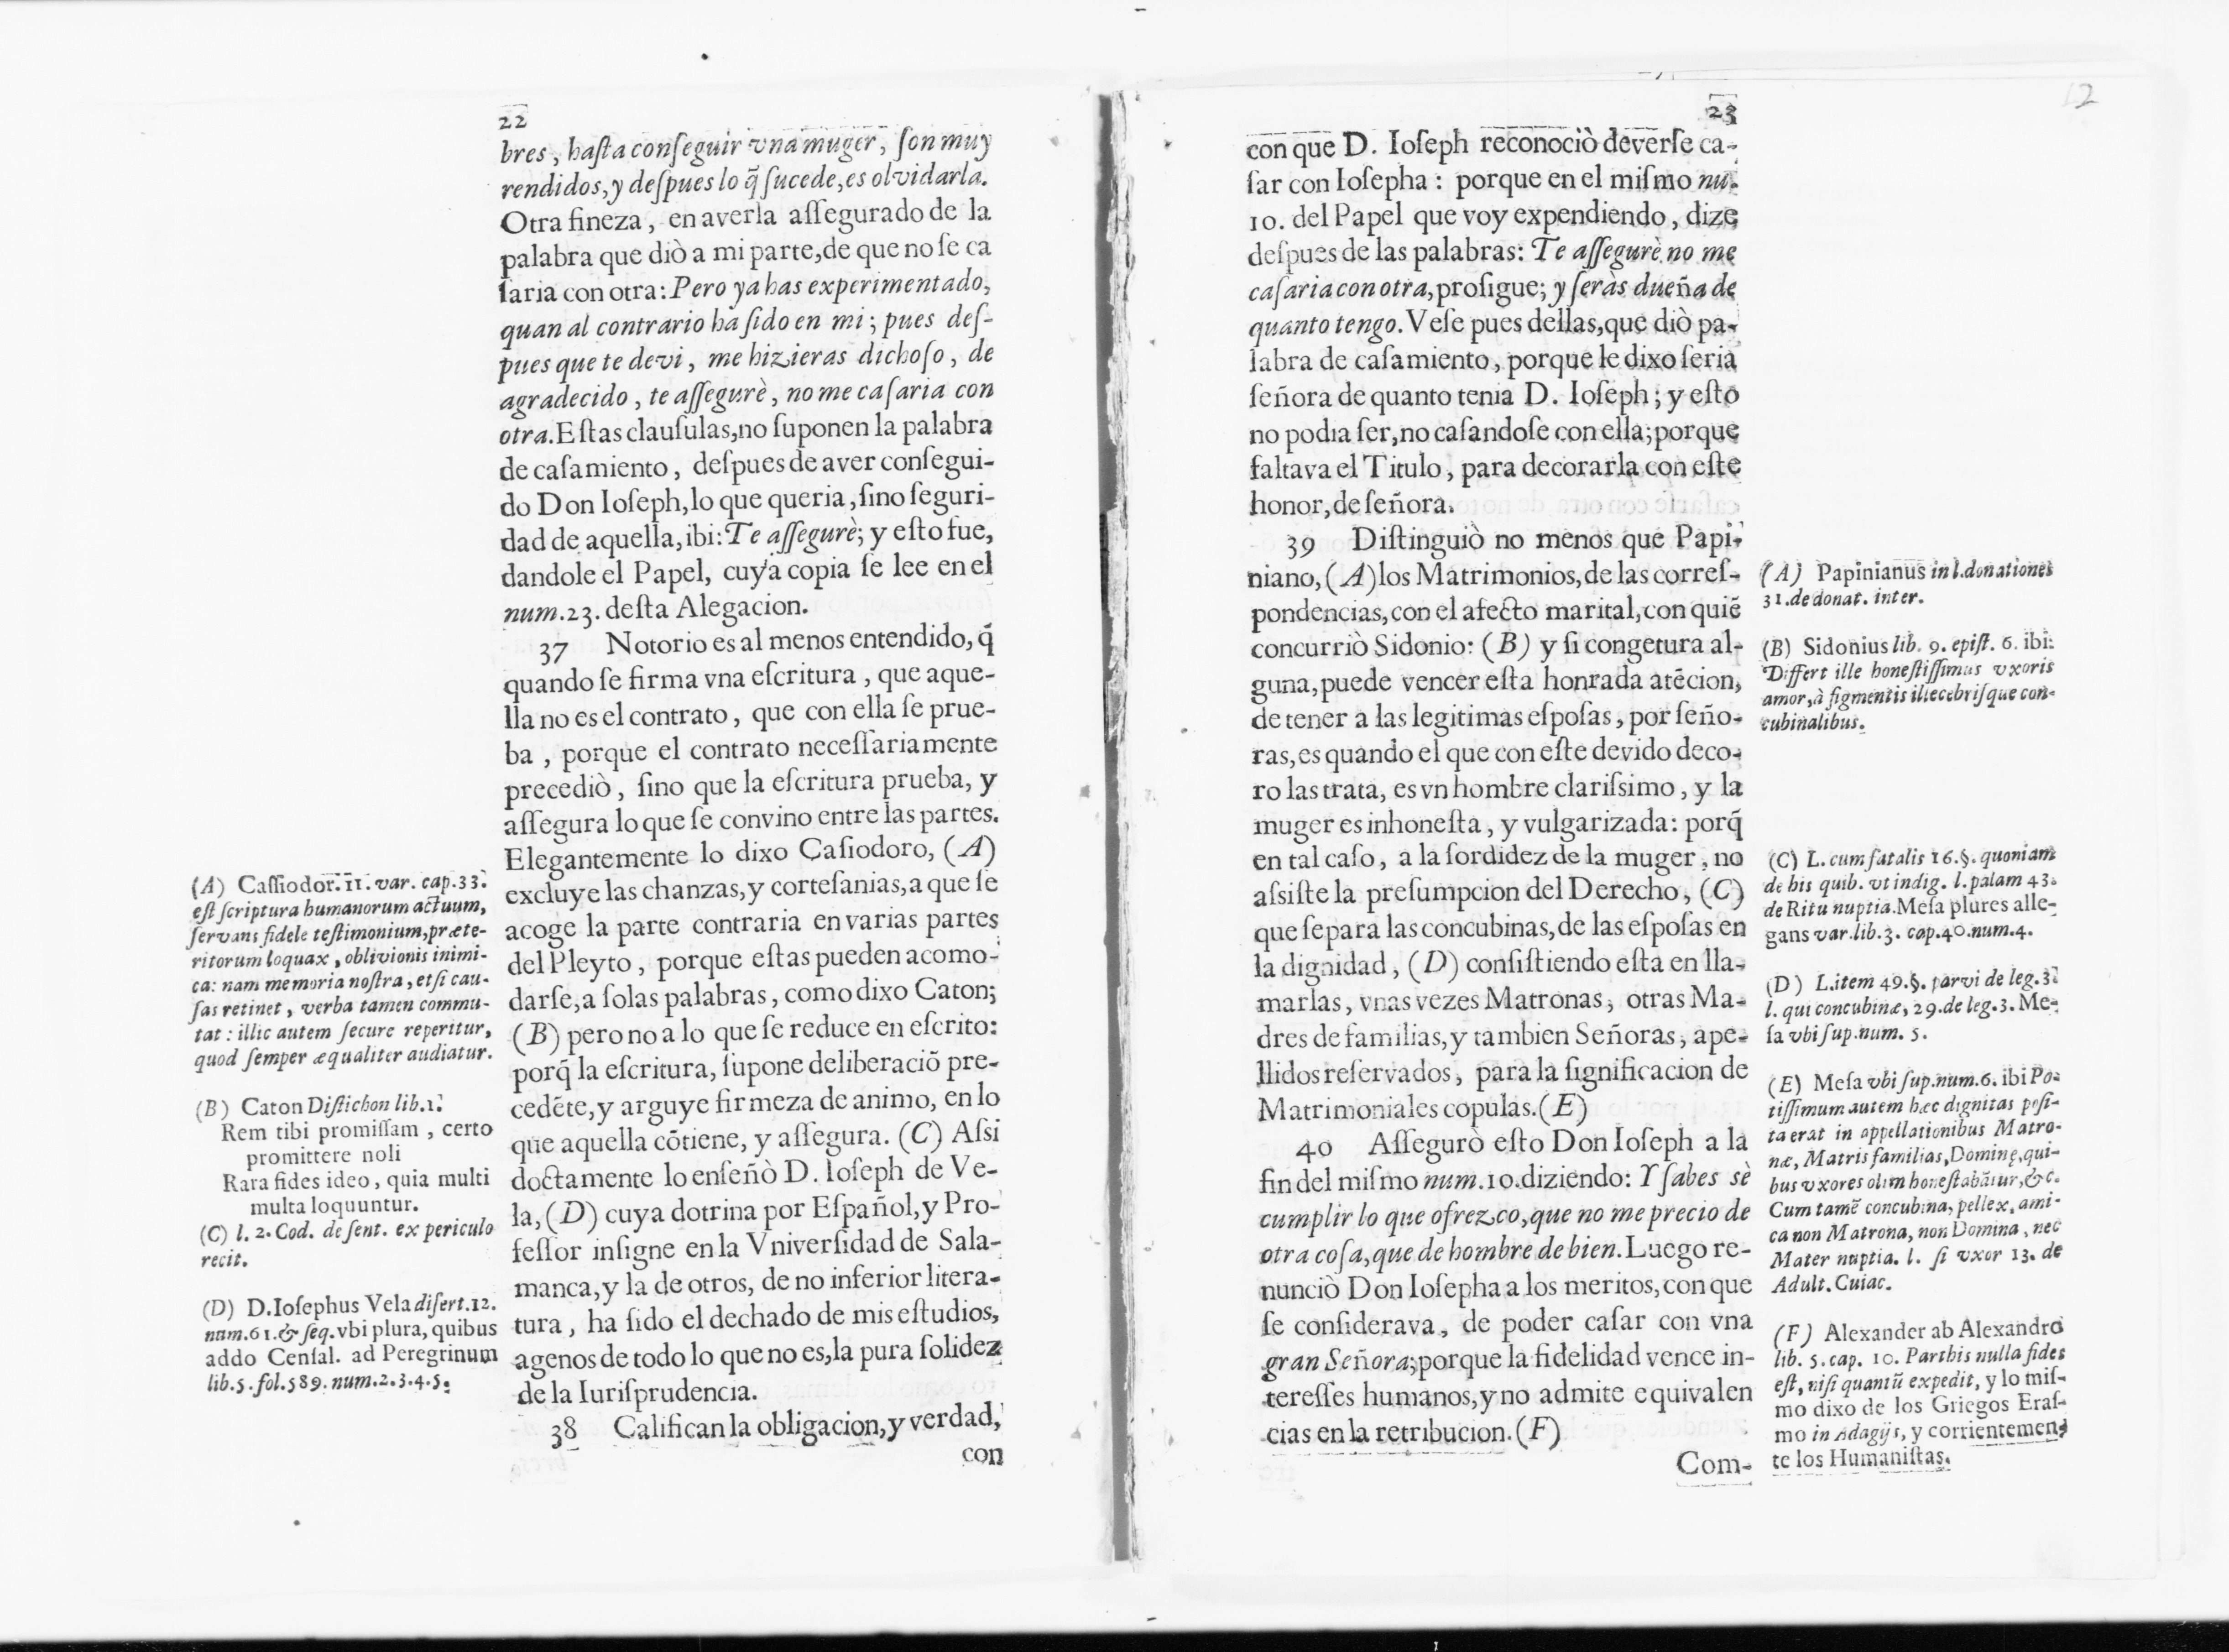 22
bres, hasta conseguir vna muger, son muy
rendidos, y despues lo q̃ sucede, es olvidarla.
Otra fineza, en averla assegurado de la
palabra que diò a mi parte, de que no se ca
saria con otra: Pero ya has experimentado,
quan al contrario ha sido en mi; pues des-
pues que te devi, me hizieras dichoso, de
agradecido, te assegurè, no me casaria con
otra. Estas clausulas, no suponen la palabra
de casamiento, despues de aver consegui-
do Don Ioseph, lo que queria, sino seguri-
dad de aquella, ibi: Te assegurè; y esto fue,
dandole el Papel, cuya copia se lee en el
num. 23. desta Alegacion.
37 Notorio es al menos entendido, q̃
quando se firma vna escritura, que aque-
lla no es el contrato, que con ella se prue-
ba, porque el contrato necessariamente
precediò, sino que la escritura prueba, y
assegura lo que se convino entre las partes.
Elegantemente lo dixo Casiodoro, (A)
excluye las chanzas, y cortesanias, a que se
acoge la parte contraria en varias partes
del Pleyto, porque estas pueden acomo-
darse, a solas palabras, como dixo Caton;
(B) pero no a lo que se reduce en escrito:
porq̃ la escritura, supone deliberaciõ pre-
cedẽte, y arguye firmeza de animo, en lo
que aquella cõtiene, y assegura. (C) Assi
doctamente lo enseñò D. Ioseph de Ve-
la, (D) cuya dotrina por Español, y Pro-
fessor insigne en la Vniversidad de Sala-
manca, y la de otros, de no inferior litera-
tura, ha sido el dechado de mis estudios,
agenos de todo lo que no es, la pura solidez
de la Iurisprudencia.
38 Califican la obligacion, y verdad,
con
(A) Cassiodor. 11. var. cap. 33.
est scriptura humanorum actuum,
servans fidele testimonium, præte-
ritorum loquax, oblivionis inimi-
ca: nam memoria nostra, etsi cau-
sas retinet, verba tamen commu-
tat: illic autem secure reperitur,
quod semper æqualiter audiatur.
(B) Caton Distichon lib. 1.
Rem tibi promissam, certo
promittere noli
Rara fides ideo, quia multi
multa loquuntur.
(C) l. 2. Cod. de sent. ex periculo
recit.
(D) D. Iosephus Vela disert. 12.
num. 61. & seq. vbi plura, quibus
addo Censal. ad Peregrinum
lib. 5. fol. 589. num. 2. 3. 4. 5.
23
12
con que D. Ioseph reconociò deverse ca-
sar con Iosepha: porque en el mismo nu.
10. del Papel que voy expendiendo, dize
despues de las palabras: Te assegurè no me
casaria con otra, prosigue; y seràs dueña de
quanto tengo. Vese pues dellas, que diò pa-
labra de casamiento, porque le dixo seria
señora de quanto tenia D. Ioseph; y esto
no podia ser, no casandose con ella; porque
faltava el Titulo, para decorarla con este
honor, de señora.
39 Distinguiò no menos que Papi-
niano, (A) los Matrimonios, de las corres-
pondencias, con el afecto marital, con quiẽ
concurriò Sidonio: (B) y si congetura al-
guna, puede vencer esta honrada atẽcion,
de tener a las legitimas esposas, por seño-
ras, es quando el que con este devido deco-
ro las trata, es vn hombre clarissimo, y la
muger es inhonesta, y vulgarizada: porq̃
en tal caso, a la sordidez de la muger, no
assiste la presumpcion del Derecho, (C)
que separa las concubinas, de las esposas en
la dignidad, (D) consistiendo esta en lla-
marlas, vnas vezes Matronas, otras Ma-
dres de familias, y tambien Señoras, ape-
llidos reservados, para la significacion de
Matrimoniales copulas. (E)
40 Assegurò esto Don Ioseph a la
fin del mismo num. 10. diziendo: Y sabes sè
cumplir lo que ofrezco, que no me precio de
otra cosa, que de hombre de bien. Luego re-
nunciò Don Iosepha a los meritos, con que
se considerava, de poder casar con vna
gran Señora; porque la fidelidad vence in-
teresses humanos, y no admite equivalen
cias en la retribucion. (F)
Com-
(A) Papinianus in l. donationes
31. de donat. inter.
(B) Sidonius lib. 9. epist. 6. ibi:
Differt ille honestissimus vxoris
amor, à figmentis illecebrisque con-
cubinalibus.
(C) L. cum fatalis 16. §. quoniam
de his quib. vt indig. l. palam 43.
de Ritu nuptia. Mesa plures alle-
gans var. lib. 3. cap. 40. num. 4.
(D) L. item 49. §. parvi de leg. 3.
l. qui concubinæ, 29. de leg. 3. Me-
sa vbi sup. num. 5.
(E) Mesa vbi sup. num. 6. ibi Po-
tissimum autem hæc dignitas posi-
ta erat in appellationibus Matro-
næ, Matris familias, Dominę, qui-
bus vxores olim honestabãtur, &c.
Cum tamẽ concubina, pellex, ami-
ca non Matrona, non Domina, nec
Mater nuptia. l. si vxor 13. de
Adult. Cuiac.
(F) Alexander ab Alexandro
lib. 5. cap. 10. Parthis nulla fides
est, nisi quantũ expedit, y lo mis-
mo dixo de los Griegos Eras-
mo in Adagijs, y corrientemen-
te los Humanistas.